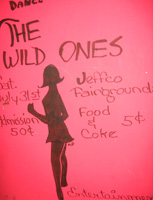 DANCE
THE
WILD ONES
Sat.
July 31st
Admission
50¢
Jeffco
Fairground
Food
&
Coke
5¢
Entertainment